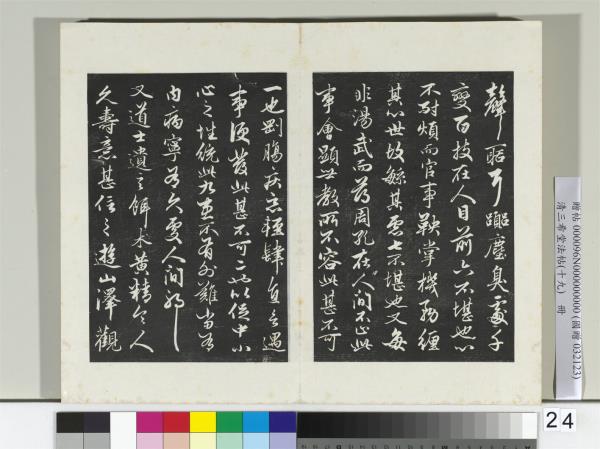 聲聒耳囂塵臭處千
變百技在人目前六不堪也心
不耐煩而官事鞅掌機務纏
其心世故繁其慮七不堪也又每
非湯武而薄周孔在人間不止此
事會顯世教所不容此甚不可
一也剛腸疾惡輕肆直言遇
事便發此甚不可二也以促中小
心之性統此九患不有外難當有
內病寧可久處人間邪
又道士遺言餌朮黃精令人
久壽意甚信之遊山澤觀
贈帖 000096N000000000 (國贈 032123)
清三希堂法帖(十九) 冊
24